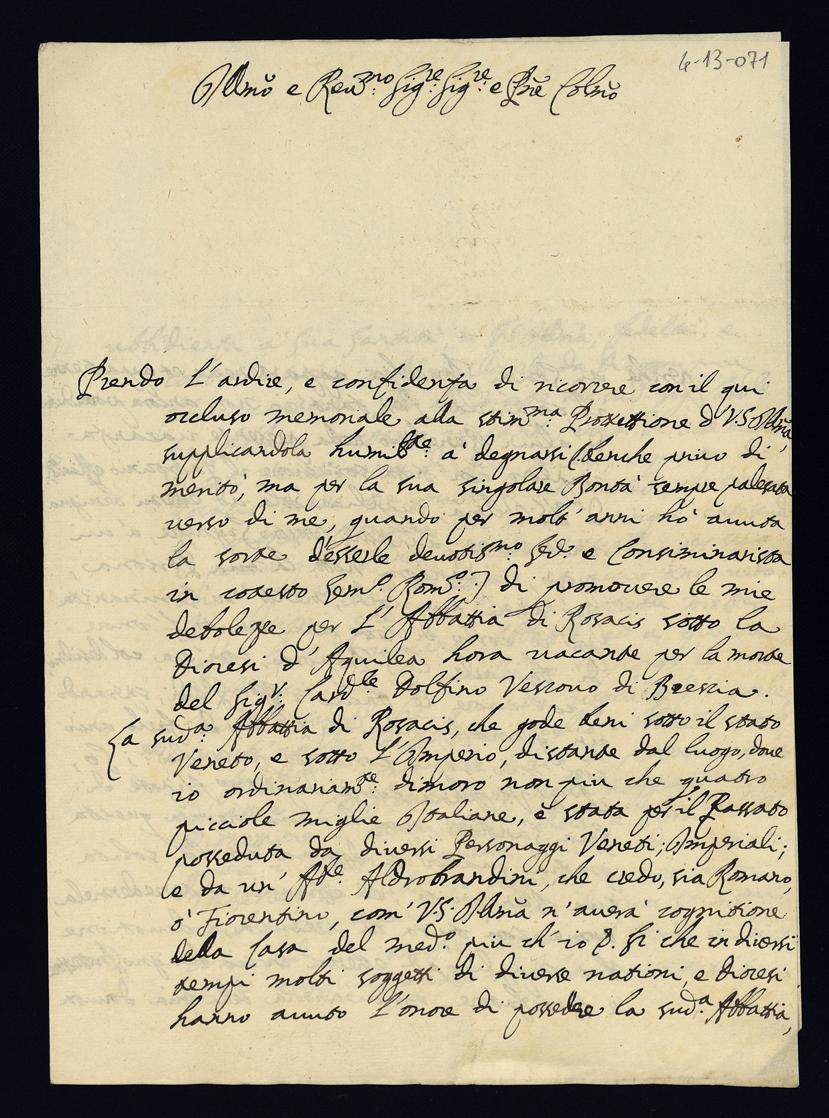 4-13-071
Illmo e Reu.mo Sig.re Sig.re e Pne Colmo
Prendo l'ardire, e confidenza di ricorrere con il qui
occluso memoriale alla stim.ma Prottettione d V.S. Illma,
supplicandola humil.te a' degnarsi (benche priuo di
merito', ma per la sua singolare Bontà sempre palesata
uerso di me, quando per molt'anni hò auuta
la sorte d'esserle deuotis.mo Sed.e e Consiminarista
in cotesto Sem.o Rom.o) di promouere le mie
debolezze per l'Abbattia di Rosacis sotto la
Diocesi d'Aquilea hora uacante per la morte
del Sig.r Card.le Dolfino Vescouo di Brescia.
La sud.a Abbattia di Rosacis, che gode beni sotto il stato
Veneto, e sotto l'Imperio, distante dal luogo, doue
io ordinariam.te dimoro non piu che quatro
picciole miglie Italiane, è stata per il Passato
posseduta da diuersi Personaggi Veneti; Imperiali;
e da un' Ab.e Aldrobrandini, che credo, sia Romano,
ò Fiorentino, com' V.S. Illma n'auerà cognitione
della Casa del med.o piu ch'io P. Si che in diuersi
tempi molti soggetti di diuerse nationi, e Diocesi
hanno auuto l'onore di possedere la sud.a Abbattia,